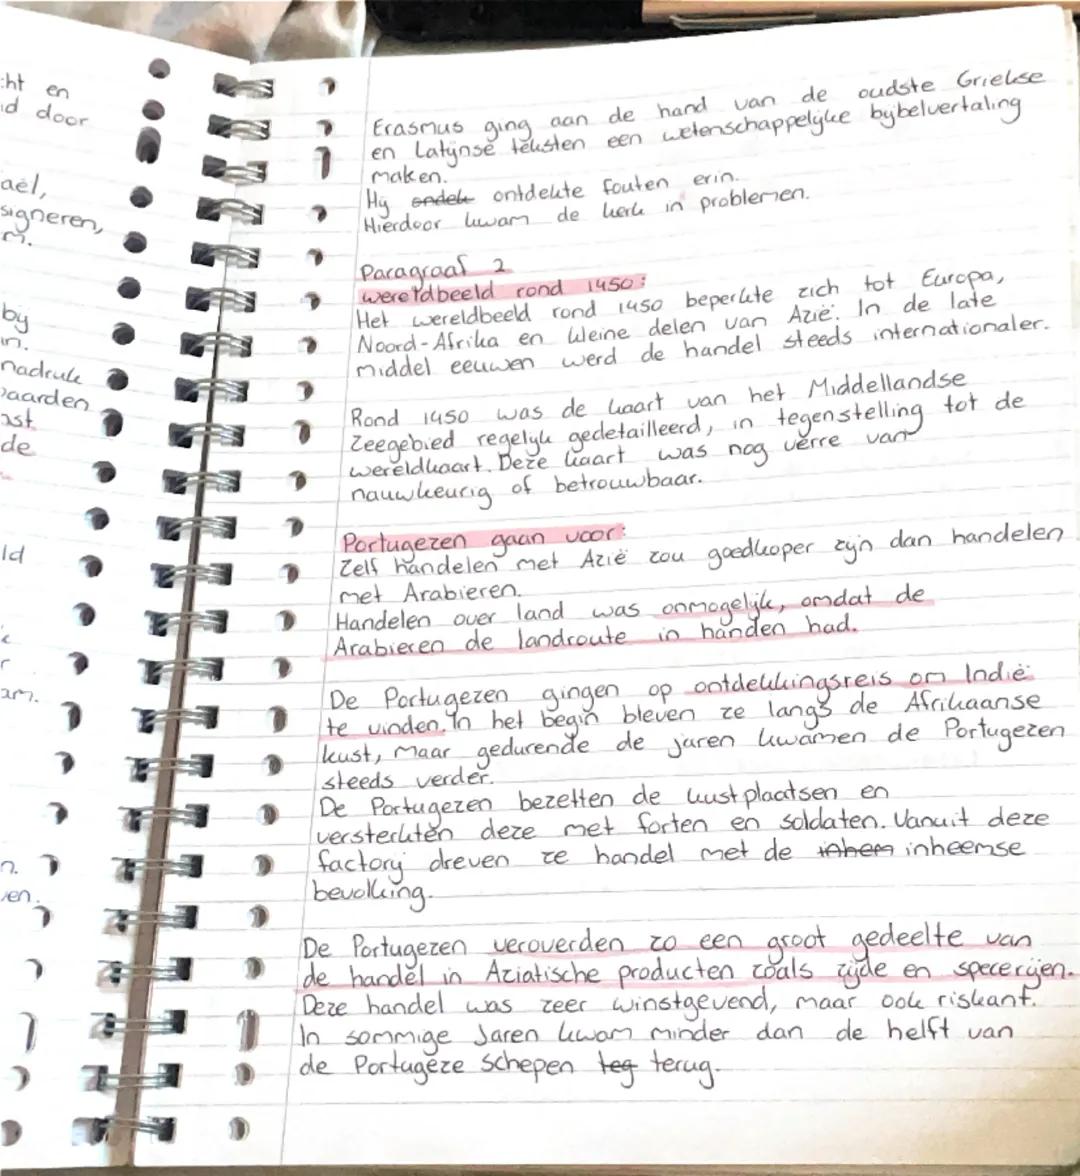 cht en
id door
aël,
signeren,
m.
bij
in.
nadruk
paarden
ast
de
ld
r
am.
n.
ven.
Erasmus ging aan de hand van de oudste Griekse
en Latijnse teksten een wetenschappelijke bijbelvertaling
maken.
Hij ondek ontdekte fouten erin.
Hierdoor kwam de kerk in problemen.
Paragraaf 2
wereldbeeld rond 1450:
Het wereldbeeld rond 1450 beperkte zich tot Europa,
Noord-Afrika en kleine delen van Azië. In de late
middel eeuwen werd de handel steeds internationaler.
Rond 1450 was de kaart van het Middellandse
Zeegebied regelijk gedetailleerd, in tegenstelling tot de
wereldkaart. Deze kaart was nog verre van
nauwkeurig of betrouwbaar.
Portugezen gaan voor:
Zelf handelen met Azië zou goedkoper zijn dan handelen
met Arabieren.
Handelen over land was onmogelijk, omdat de
Arabieren de landroute in handen had.
De Portugezen gingen op ontdekkingsreis om Indië
te vinden. In het begin bleven ze langs de Afrikaanse
kust, maar gedurende de jaren kwamen de Portugezen
steeds verder.
De Portugezen bezetten de kustplaatsen en
versterkten deze met forten en soldaten. Vanuit deze
factorij dreven ze handel met de inhem inheemse
bevolking.
De Portugezen veroverden zo een groot gedeelte van
de handel in Aziatische producten zoals zijde en specerijen.
Deze handel was zeer winstgevend, maar ook riskant.
In sommige Jaren kwam minder dan de helft van
de Portugeze schepen teg terug.